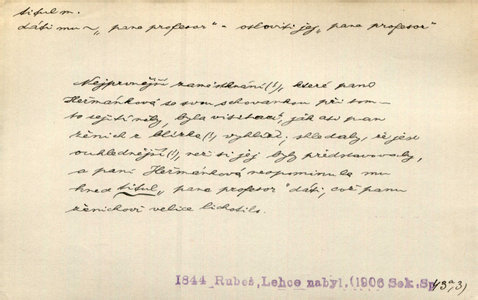 titul m.
dáti mu ~ „pane profesor" = osloviti jej „pane profesor"
Nejprvnější zaměstnání(!), které paní
Heřmánková se svou schovankou při tom-
to sejití měly, byla visitací, jak asi pan
ženich z blízka(!) vyhlíží; shledaly, že jest
ouhlednější(!), než si jej byly představovaly,
a paní Heřmánková nezpomínula mu
hned titul „pane profesor" dáti, což panu
ženichovi velice lichotilo.
1844 Rubeš, Lehce nabyl. (1906 Sek. Sp.